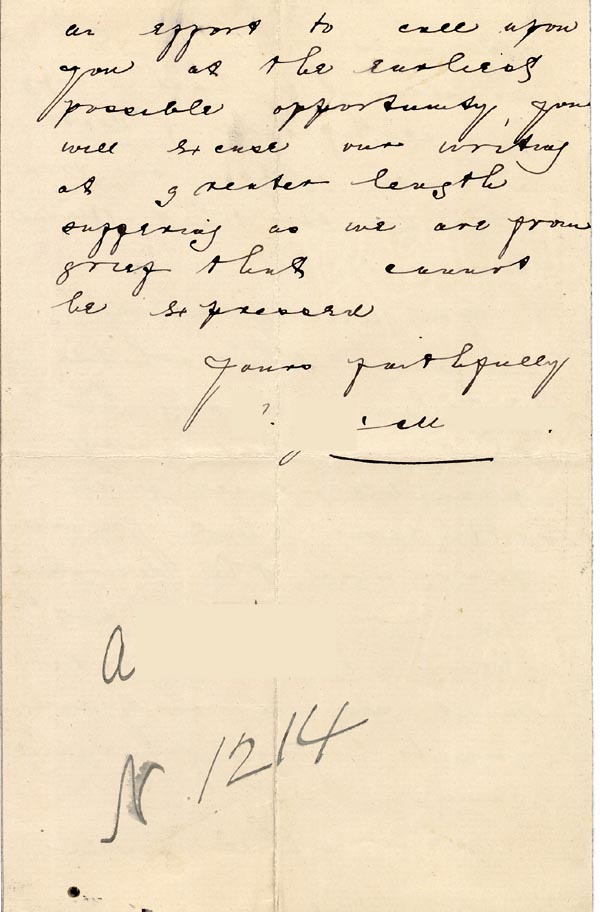 an effort to call upon
you at the earliest
possible opportunity, you
will excuse our writing
at greater length
suffering as we are from
grief that cannot
be expressed
Yours faithfully
a
N 1214